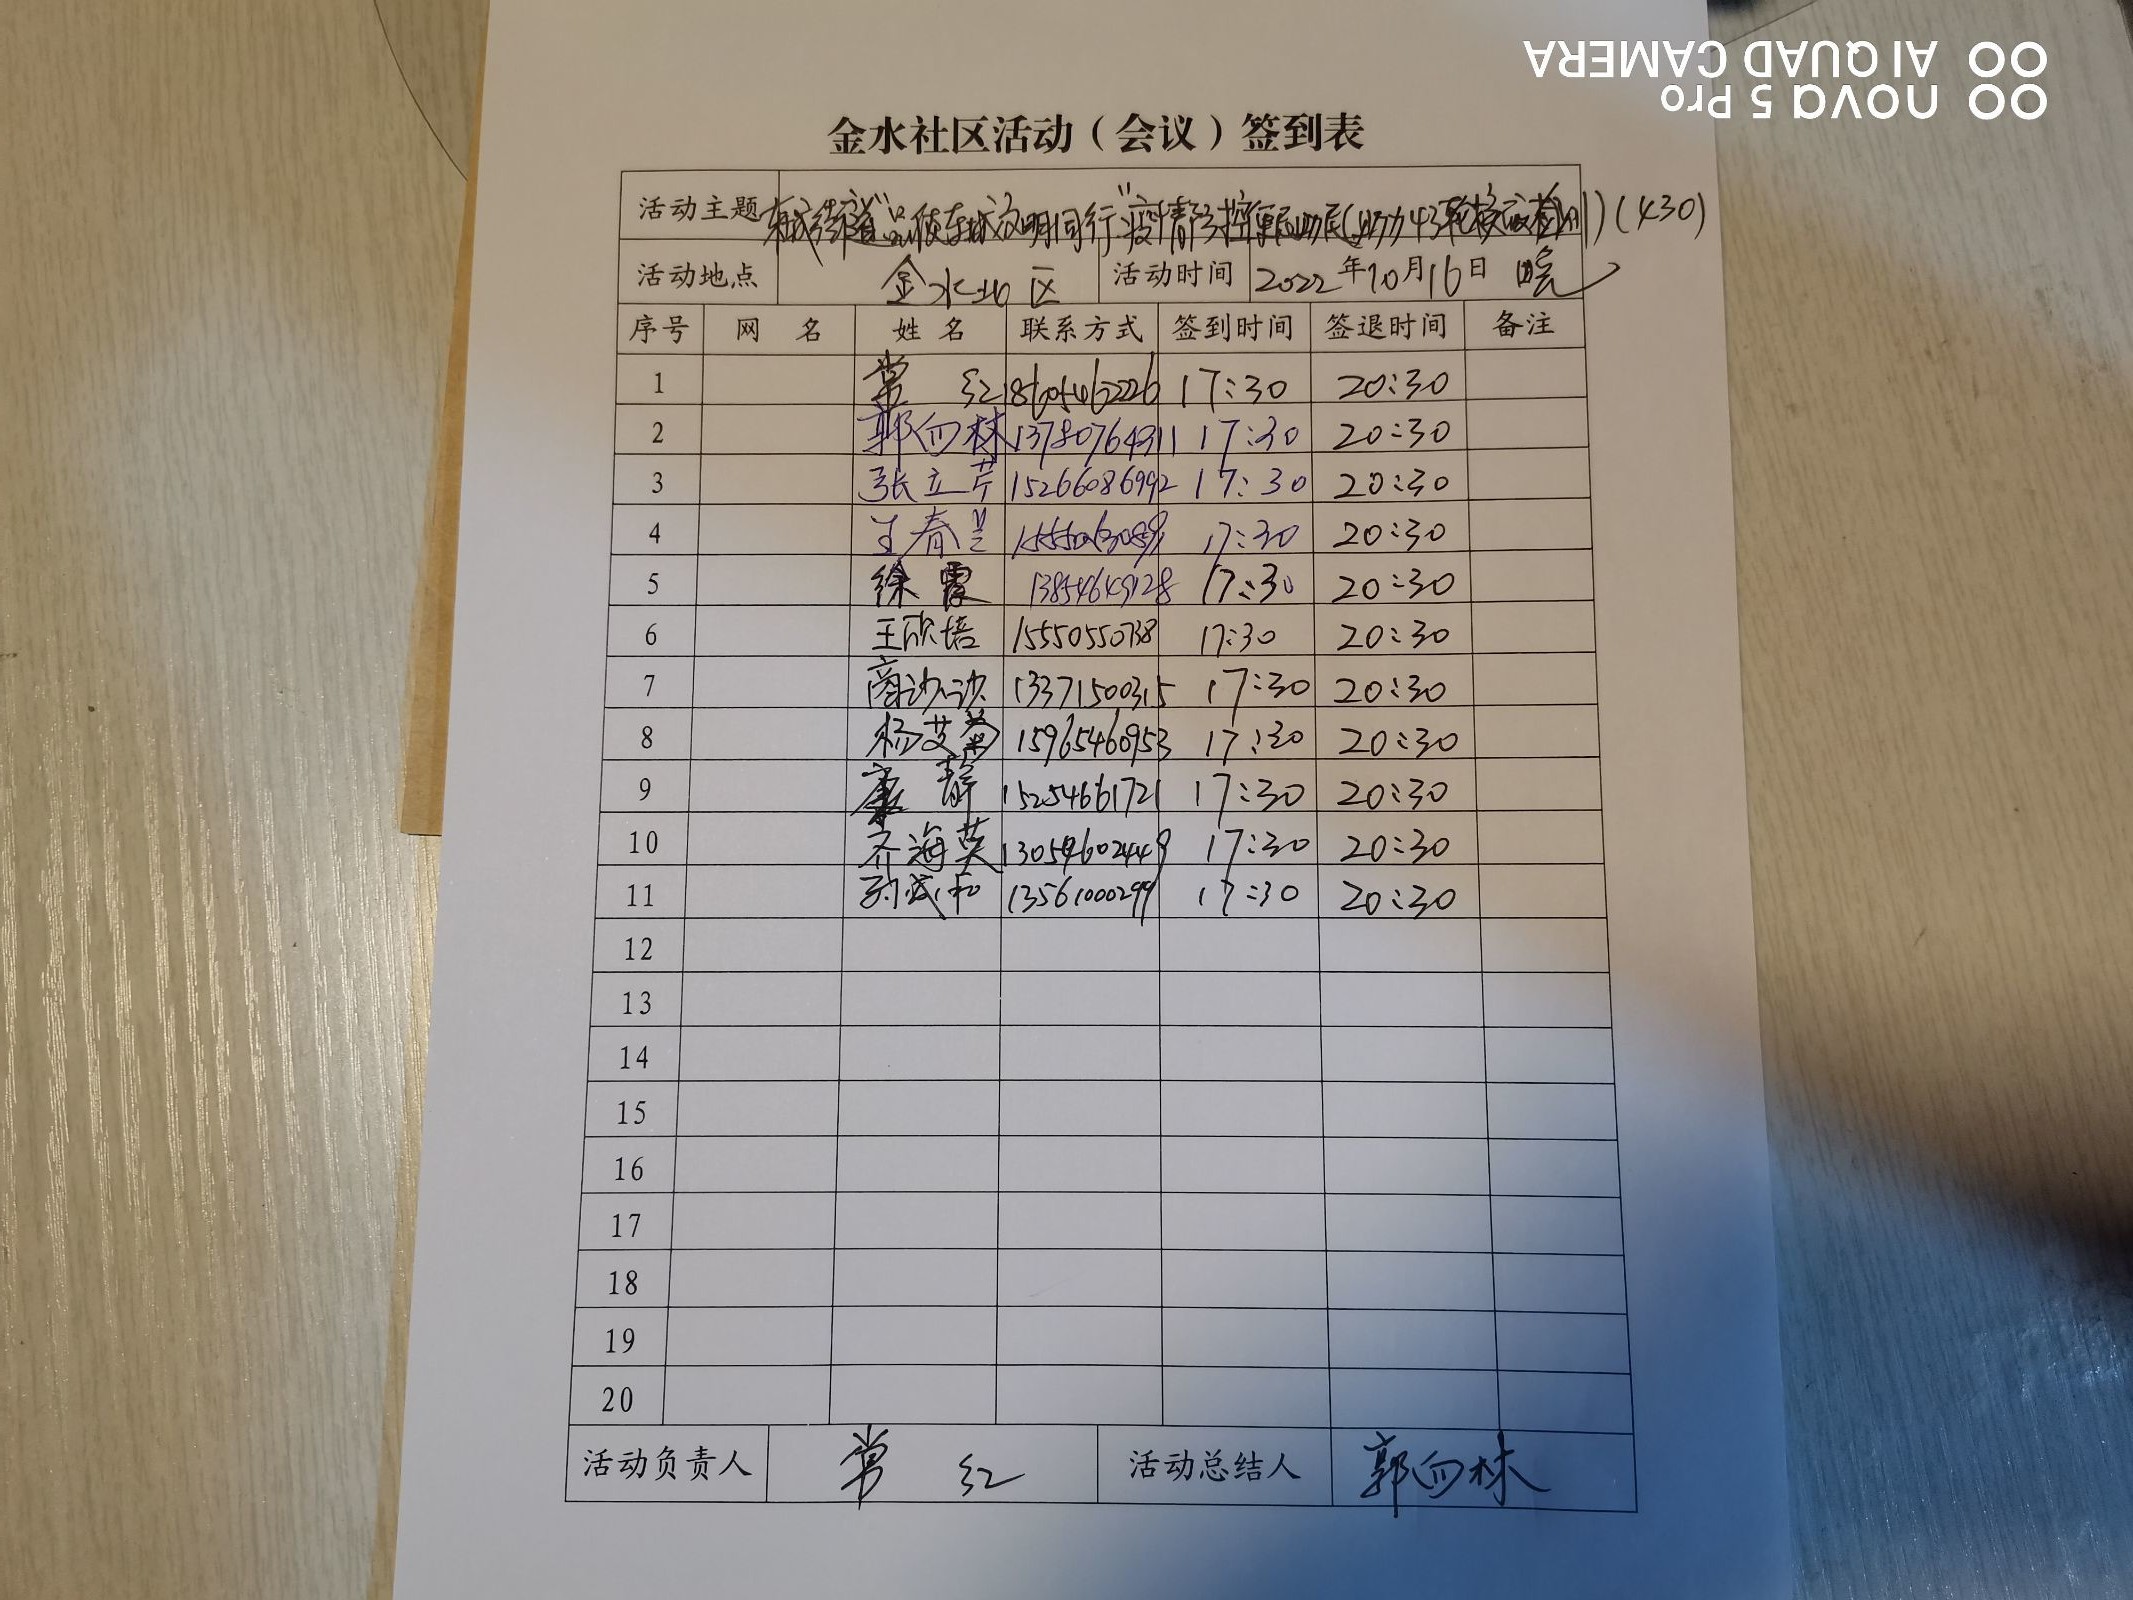 AI QUAD CAMERA
nova 5 Pro
金水社区活动（会议）签到表
活动主题 东城街道"品质东城文明同行"疫情防控便民助民(助力43轮核酸检测)(430)
活动地点 金水社区 活动时间 2022年10月16日 晚
序号 网 名 姓 名 联系方式 签到时间 签退时间 备注
1 常 红 18605462226 17:30 20:30
2 郭向林 13780764911 17:30 20:30
3 张立芹 15266086992 17:30 20:30
4 王春兰 17:30 20:30
5 徐霞 13854649128 17:30 20:30
6 王欣培 15550550738 17:30 20:30
7 商沙沙 13371500315 17:30 20:30
8 杨艾菊 15965460953 17:30 20:30
9 康静 15254661721 17:30 20:30
10 齐海英 13054602449 17:30 20:30
11 13561000299 17:30 20:30
12
13
14
15
16
17
18
19
20
活动负责人 常 红 活动总结人 郭向林